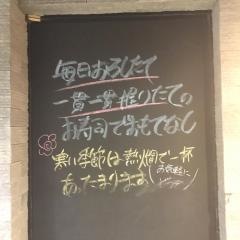 毎日おろしたて
一貫一貫握りたての
お寿司でおもてなし
寒い季節は熱燗で一杯
あったまります
(お気軽に
どうぞ)